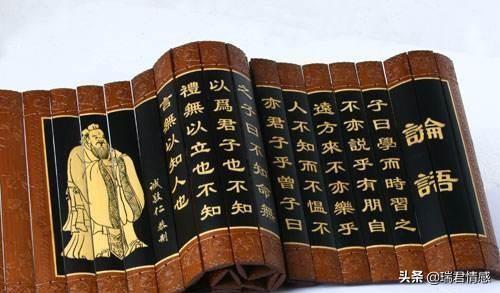 論語
子曰學而時習之
不亦說乎有朋自
遠方來不亦樂乎
人不知而不慍不
亦君子乎曾子曰
之子曰不知命無
以爲君子也不知
禮無以立也不知
言無以知人也
誠敬仁
头条 @瑞君情感